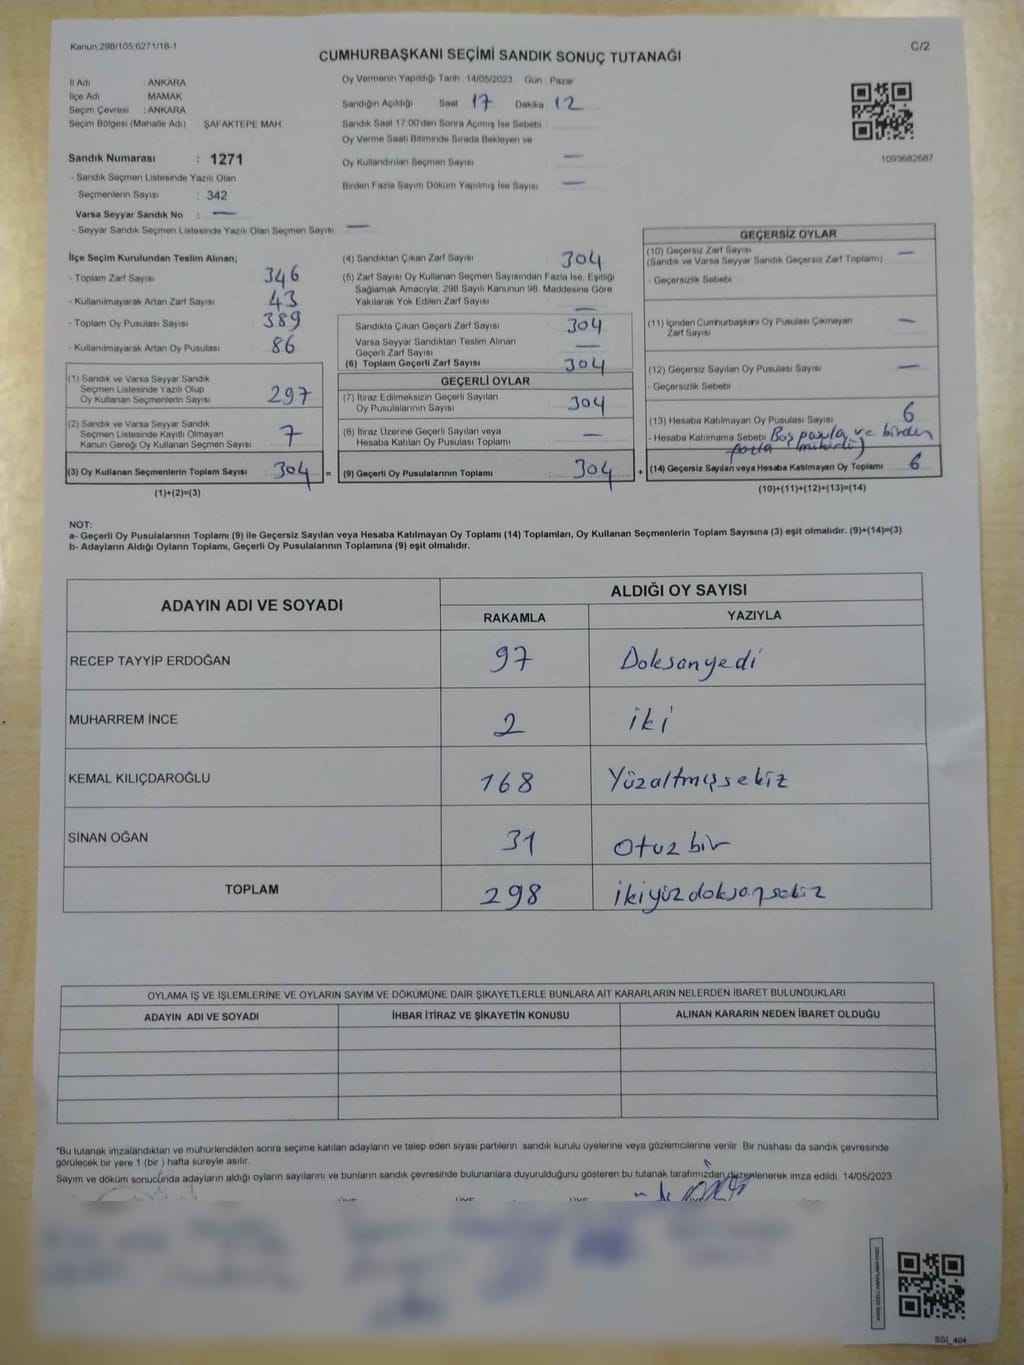 Kanun:298/105;6271/18-1
C/2
CUMHURBAŞKANI SEÇİMİ SANDIK SONUÇ TUTANAĞI
İl Adı ANKARA
İlçe Adı MAMAK
Seçim Çevresi : ANKARA
Seçim Bölgesi (Mahalle Adı) : ŞAFAKTEPE MAH.
Sandık Numarası : 1271
- Sandık Seçmen Listesinde Yazılı Olan
Seçmenlerin Sayısı : 342
Varsa Seyyar Sandık No : —
- Seyyar Sandık Seçmen Listesinde Yazılı Olan Seçmen Sayısı —
Oy Vermenin Yapıldığı Tarih 14/05/2023 Gün : Pazar
Sandığın Açıldığı Saat 17 Dakika 12
Sandık Saat 17.00'den Sonra Açılmış İse Sebebi
Oy Verme Saati Bitiminde Sırada Bekleyen ve
Oy Kullandırılan Seçmen Sayısı —
Birden Fazla Sayım Döküm Yapılmış İse Sayısı —
1093682687
İlçe Seçim Kurulundan Teslim Alınan;
- Toplam Zarf Sayısı 346
- Kullanılmayarak Artan Zarf Sayısı 43
- Toplam Oy Pusulası Sayısı 389
- Kullanılmayarak Artan Oy Pusulası 86
(1) Sandık ve Varsa Seyyar Sandık
Seçmen Listesinde Yazılı Olup
Oy Kullanan Seçmenlerin Sayısı 297
(2) Sandık ve Varsa Seyyar Sandık
Seçmen Listesinde Kayıtlı Olmayan
Kanun Gereği Oy Kullanan Seçmen Sayısı 7
(3) Oy Kullanan Seçmenlerin Toplam Sayısı : 304 =
(1)+(2)=(3)
(4) Sandıktan Çıkan Zarf Sayısı 304
(5) Zarf Sayısı Oy Kullanan Seçmen Sayısından Fazla İse, Eşitliği
Sağlamak Amacıyla, 298 Sayılı Kanunun 98. Maddesine Göre
Yakılarak Yok Edilen Zarf Sayısı —
Sandıkta Çıkan Geçerli Zarf Sayısı 304
Varsa Seyyar Sandıktan Teslim Alınan
Geçerli Zarf Sayısı —
(6) Toplam Geçerli Zarf Sayısı 304
GEÇERLİ OYLAR
(7) İtiraz Edilmeksizin Geçerli Sayılan
Oy Pusulalarının Sayısı 304
(8) İtiraz Üzerine Geçerli Sayılan veya
Hesaba Katılan Oy Pusulası Toplamı —
(9) Geçerli Oy Pusulalarının Toplamı 304 +
GEÇERSİZ OYLAR
(10) Geçersiz Zarf Sayısı —
(Sandık ve Varsa Seyyar Sandık Geçersiz Zarf Toplamı)
- Geçersizlik Sebebi
(11) İçinden Cumhurbaşkanı Oy Pusulası Çıkmayan
Zarf Sayısı —
(12) Geçersiz Sayılan Oy Pusulası Sayısı —
- Geçersizlik Sebebi
(13) Hesaba Katılmayan Oy Pusulası Sayısı 6
- Hesaba Katılmama Sebebi Boş pusula ve birden
fazla mühürlü)
(14) Geçersiz Sayılan veya Hesaba Katılmayan Oy Toplamı 6
(10)+(11)+(12)+(13)=(14)
NOT:
a- Geçerli Oy Pusulalarının Toplamı (9) ile Geçersiz Sayılan veya Hesaba Katılmayan Oy Toplamı (14) Toplamları, Oy Kullanan Seçmenlerin Toplam Sayısına (3) eşit olmalıdır. (9)+(14)=(3)
b- Adayların Aldığı Oyların Toplamı, Geçerli Oy Pusulalarının Toplamına (9) eşit olmalıdır.
ADAYIN ADI VE SOYADI ALDIĞI OY SAYISI
RAKAMLA YAZIYLA
RECEP TAYYİP ERDOĞAN 97 Doksanyedi
MUHARREM İNCE 2 iki
KEMAL KILIÇDAROĞLU 168 Yüzaltmışsekiz
SİNAN OĞAN 31 otuz bir
TOPLAM 298 ikiyüzdoksansekiz
OYLAMA İŞ VE İŞLEMLERİNE VE OYLARIN SAYIM VE DÖKÜMÜNE DAİR ŞİKAYETLERLE BUNLARA AİT KARARLARIN NELERDEN İBARET BULUNDUKLARI
ADAYIN ADI VE SOYADI İHBAR İTİRAZ VE ŞİKAYETİN KONUSU ALINAN KARARIN NEDEN İBARET OLDUĞU
*Bu tutanak imzalandıktan ve mühürlendikten sonra seçime katılan adayların ve talep eden siyasi partilerin sandık kurulu üyelerine veya gözlemcilerine verilir. Bir nüshası da sandık çevresinde
görülecek bir yere 1 (bir) hafta süreyle asılır.
Sayım ve döküm sonucunda adayların aldığı oyların sayılarını ve bunların sandık çevresinde bulunanlara duyurulduğunu gösteren bu tutanak tarafımızdan düzenlenerek imza edildi. 14/05/2023
SSI_404